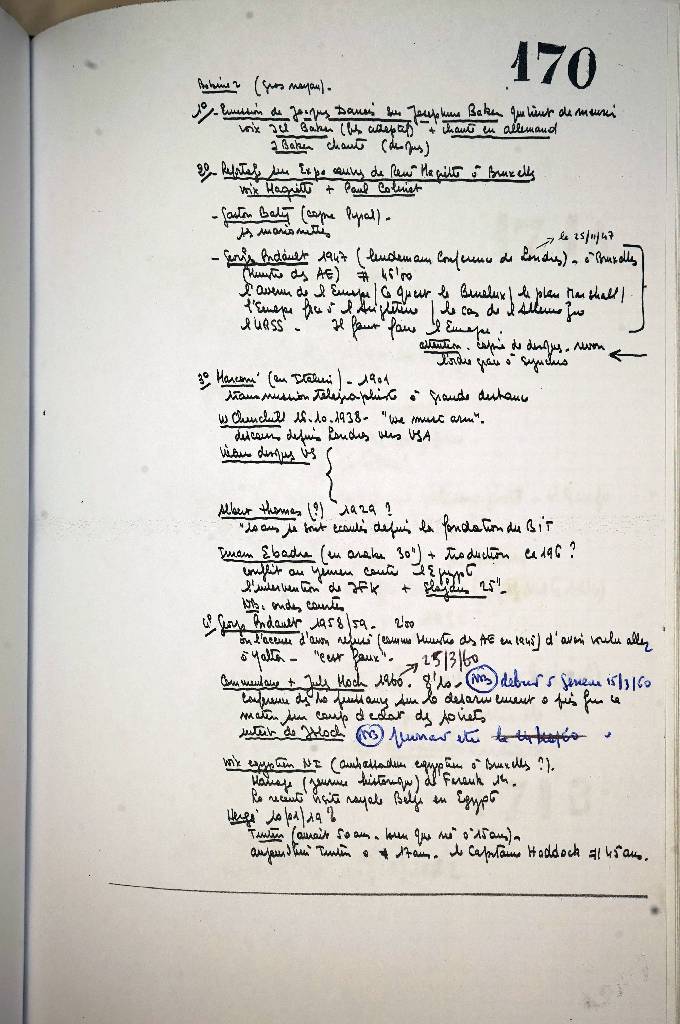 170
Bobine 2 (gros noyau).
1°/- Emission de Jacques Danois sur Josephine Baker qui vient de mourir
voix Jo Baker (les adoptés) + chante en allemand
J Baker chante (disques)
2°/- Reportage sur Expo œuvres de René Magritte à Bruxelles
voix Magritte + Paul Colinet
- Gaston Baty (copie Pyral) -
ses marionnettes
le 25/11/47
- Georges Bidault 1947 (lendemain Conférence de Londres) - à Bruxelles
(Ministre des AE) # 45'00
l'avenir de l'Europe / Ce qu'est le Benelux / le plan Marshall /
l'Europe face à l'Angleterre / le cas de l'Allemagne
l'URSS - Il faut faire l'Europe.
attention - copie de disques - revoir
l'ordre grâce à synchro
3°/ Marconi (en Italien) - 1901
transmission télégraphiste à grande distance
W Churchill 16.10.1938 - "We must arm".
discours depuis Londres vers USA
vieux disques US
Albert Thomas (?) 1929 ?
"10 ans se sont écoulés depuis la fondation du BIT
Imam El Badre (en arabe 30") + traduction ce 196 ?
conflit au Yemen contre l'Egypte
l'intervention de JFK + 25"
NB: ondes courtes
4°/ Georges Bidault 1958/59 - 2'00
on l'accuse d'avoir refusé (comme Ministre des AE en 1945) d'avoir voulu aller
à Yalta - "c'est faux". -
25/3/60
Commentaire + Jules Moch 1960. 8'10 - NB début à Genève 15/3/60
Conférence des 10 puissances sur le désarmement a pris fin ce
matin sur coup d'éclat des soviets
interv de J Moch NB
voix egyptien NI (ambassadeur egyptien à Bruxelles ?).
Mariage (journée historique) de Farouk 1er.
La récente visite royale Belge en Egypte
Hergé 10/01/19 ?
Tintin (aurait 50 ans - bien que né à 15 ans) -
aujourd'hui Tintin a # 17 ans - le Capitaine Haddock # 45 ans.